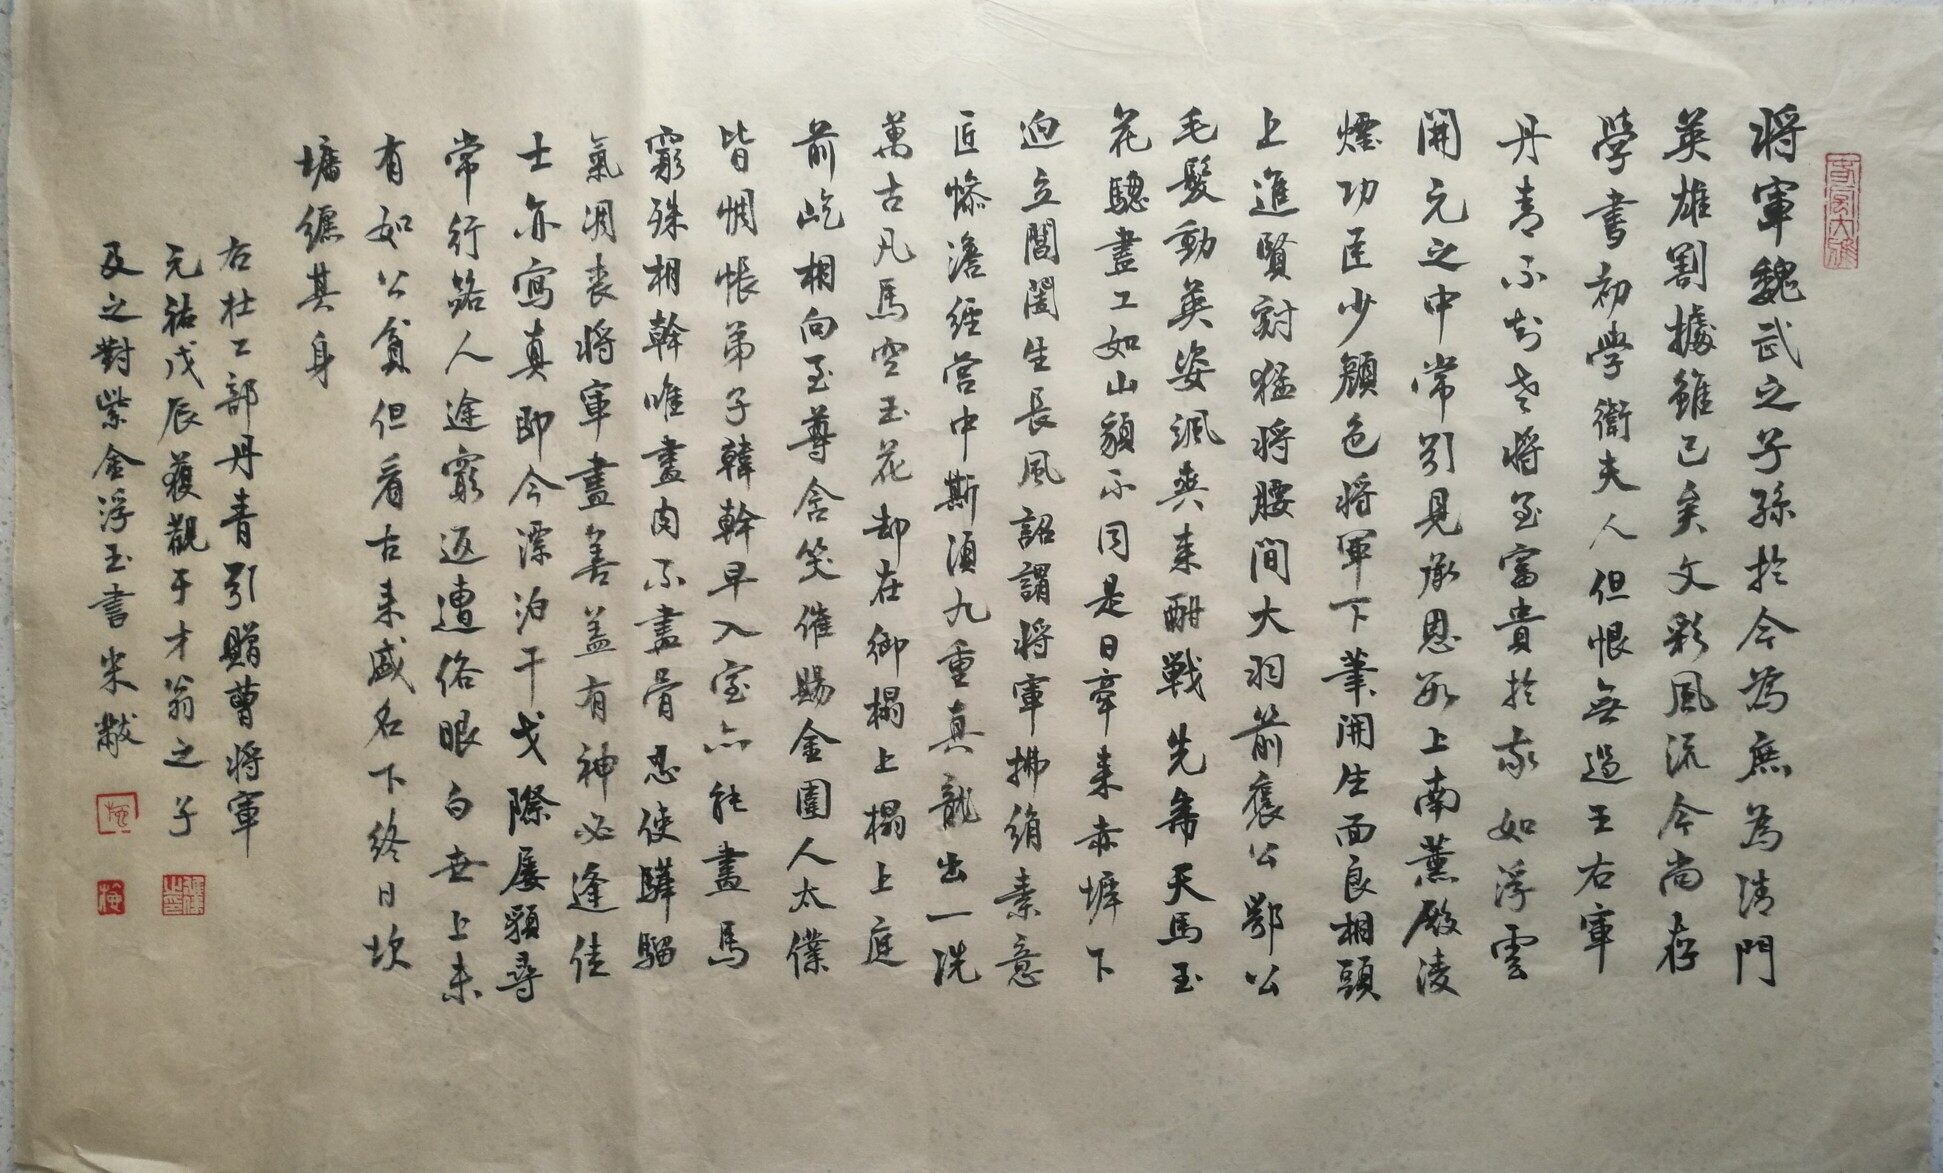 将軍魏武之子孫於今為庶為清門
英雄割據雖已矣文彩風流今尚存
學書初學衛夫人但恨無過王右軍
丹青不知老將至富貴於我如浮雲
開元之中常引見承恩數上南薰殿凌
煙功臣少顏色将軍下筆開生面良相頭
上進賢冠猛将腰間大羽箭褒公鄂公
毛髮動英姿颯爽来酣戰先帝天馬玉
花驄畫工如山貌不同是日牽来赤墀下
迥立閶闔生長風詔謂将軍拂絹素意
匠慘澹經営中斯須九重真龍出一洗
萬古凡馬空玉花却在御榻上榻上庭
前屹相向至尊含笑催賜金圉人太僕
皆惆悵弟子韓幹早入室亦能畫馬
窮殊相幹唯畫肉不畫骨忍使驊騮
氣凋喪将軍畫善盖有神必逢佳
士亦寫真即今漂泊干戈際屡貌尋
常行路人途窮返遭俗眼白世上未
有如公貧但看古来盛名下終日坎
壈纏其身
右杜工部丹青引贈曹将軍
元祐戊辰獲觀于才翁之子
及之對紫金浮玉書米黻